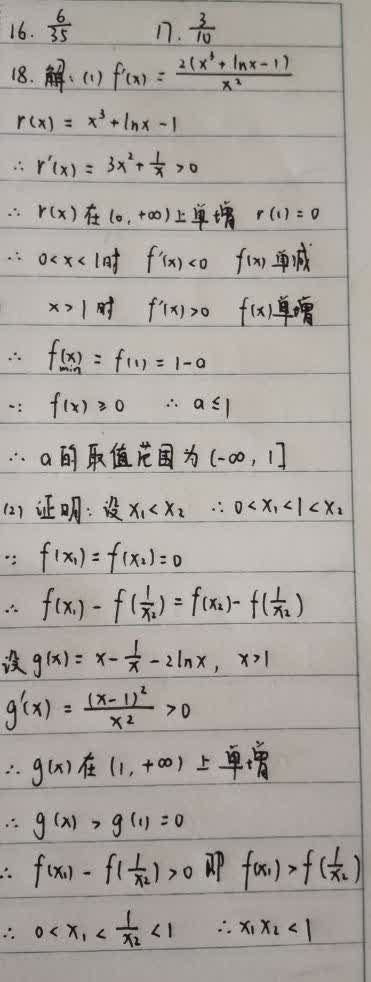 16. 6/35 17. 3/10
18. 解: (1) f'(x) = 2(x³+lnx-1)/x²
r(x) = x³+lnx-1
∴ r'(x) = 3x²+1/x >0
∴ r(x) 在 (0, +∞) 上单增 r(1)=0
∴ 0<x<1时 f'(x)<0 f(x) 单减
x>1时 f'(x)>0 f(x)单增
∴ f(x)min = f(1) = 1-a
∵ f(x) ≥ 0 ∴ a≤1
∴ a的取值范围为 (-∞, 1]
(2) 证明: 设 x₁<x₂ ∴ 0<x₁<1<x₂
∵ f(x₁)=f(x₂)=0
∴ f(x₁) - f(1/x₂) = f(x₂) - f(1/x₂)
设 g(x) = x - 1/x - 2lnx, x>1
g'(x) = (x-1)²/x² >0
∴ g(x) 在 (1, +∞) 上单增
∴ g(x) > g(1) = 0
∴ f(x₁) - f(1/x₂) >0 即 f(x₁) > f(1/x₂)
∴ 0<x₁<1/x₂<1 ∴ x₁x₂<1